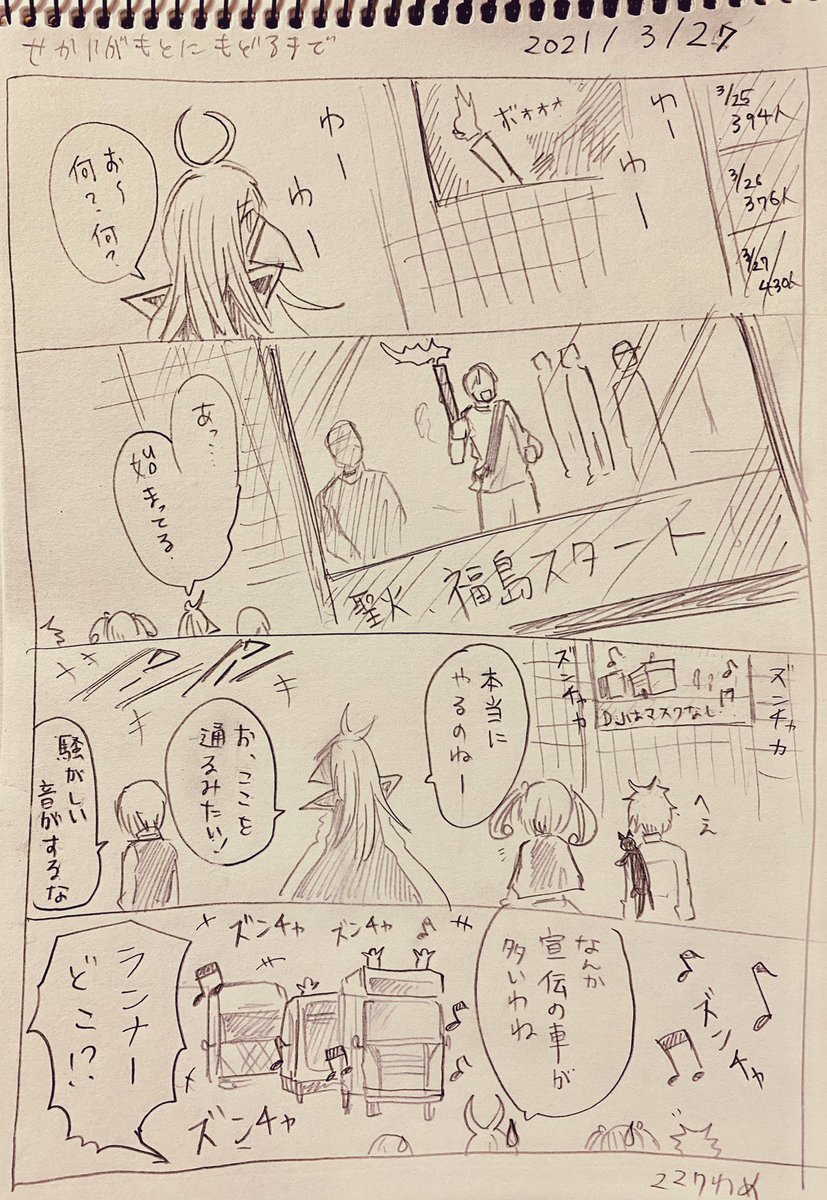 せかいがもとにもどるまで
2021/3/27
3/25
394人
3/26
376人
3/27
430人
わー
わー
ボォォォ
わー
わー
お〜
何?何?
あっ…
始まってる
聖火、福島スタート
ズンチャカ
DJはマスクなし
ズンチャカ
へえ
本当に
やるのねー
お、ここを
通るみたい!
騒がしい
音がするな
なんか
宣伝の車が
多いわね
ズンチャ
ズンチャ
ズンチャ
ズンチャ
ランナー
どこ!?
227わめ